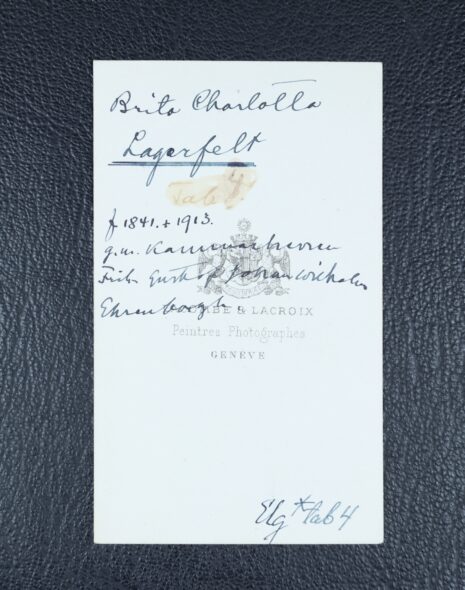 Brita Charlotta
Lagerfelt
Tab 4
f 1841. + 1913.
g.m. Kammarherren
Frih. Gustaf Johan Wilhelm
Ehrenborgh.
& LACROIX
Peintres Photographes
GENÈVE
Elg * tab 4